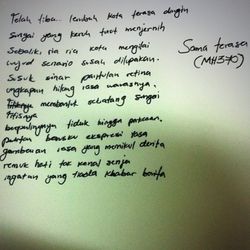 Telah tiba.. lembah kota terasa dingin
Sungai yang keruh turut menjernih
Sebalik, ria ria kota mengilai
wujud senario susah dilupakan.
Susuk sinar pantulan retina
ungkapan hilang rasa warasnya.
membentuk selatang sungai
titisnya
berpenghujungnya tidak hingga
pulihkan bonusku ekspresi rasa
gambaran rasa yang memikul derita
remuk hati tak kenal senja
ingatan yang tiada khabar berita
Sama terasa
(MH370)